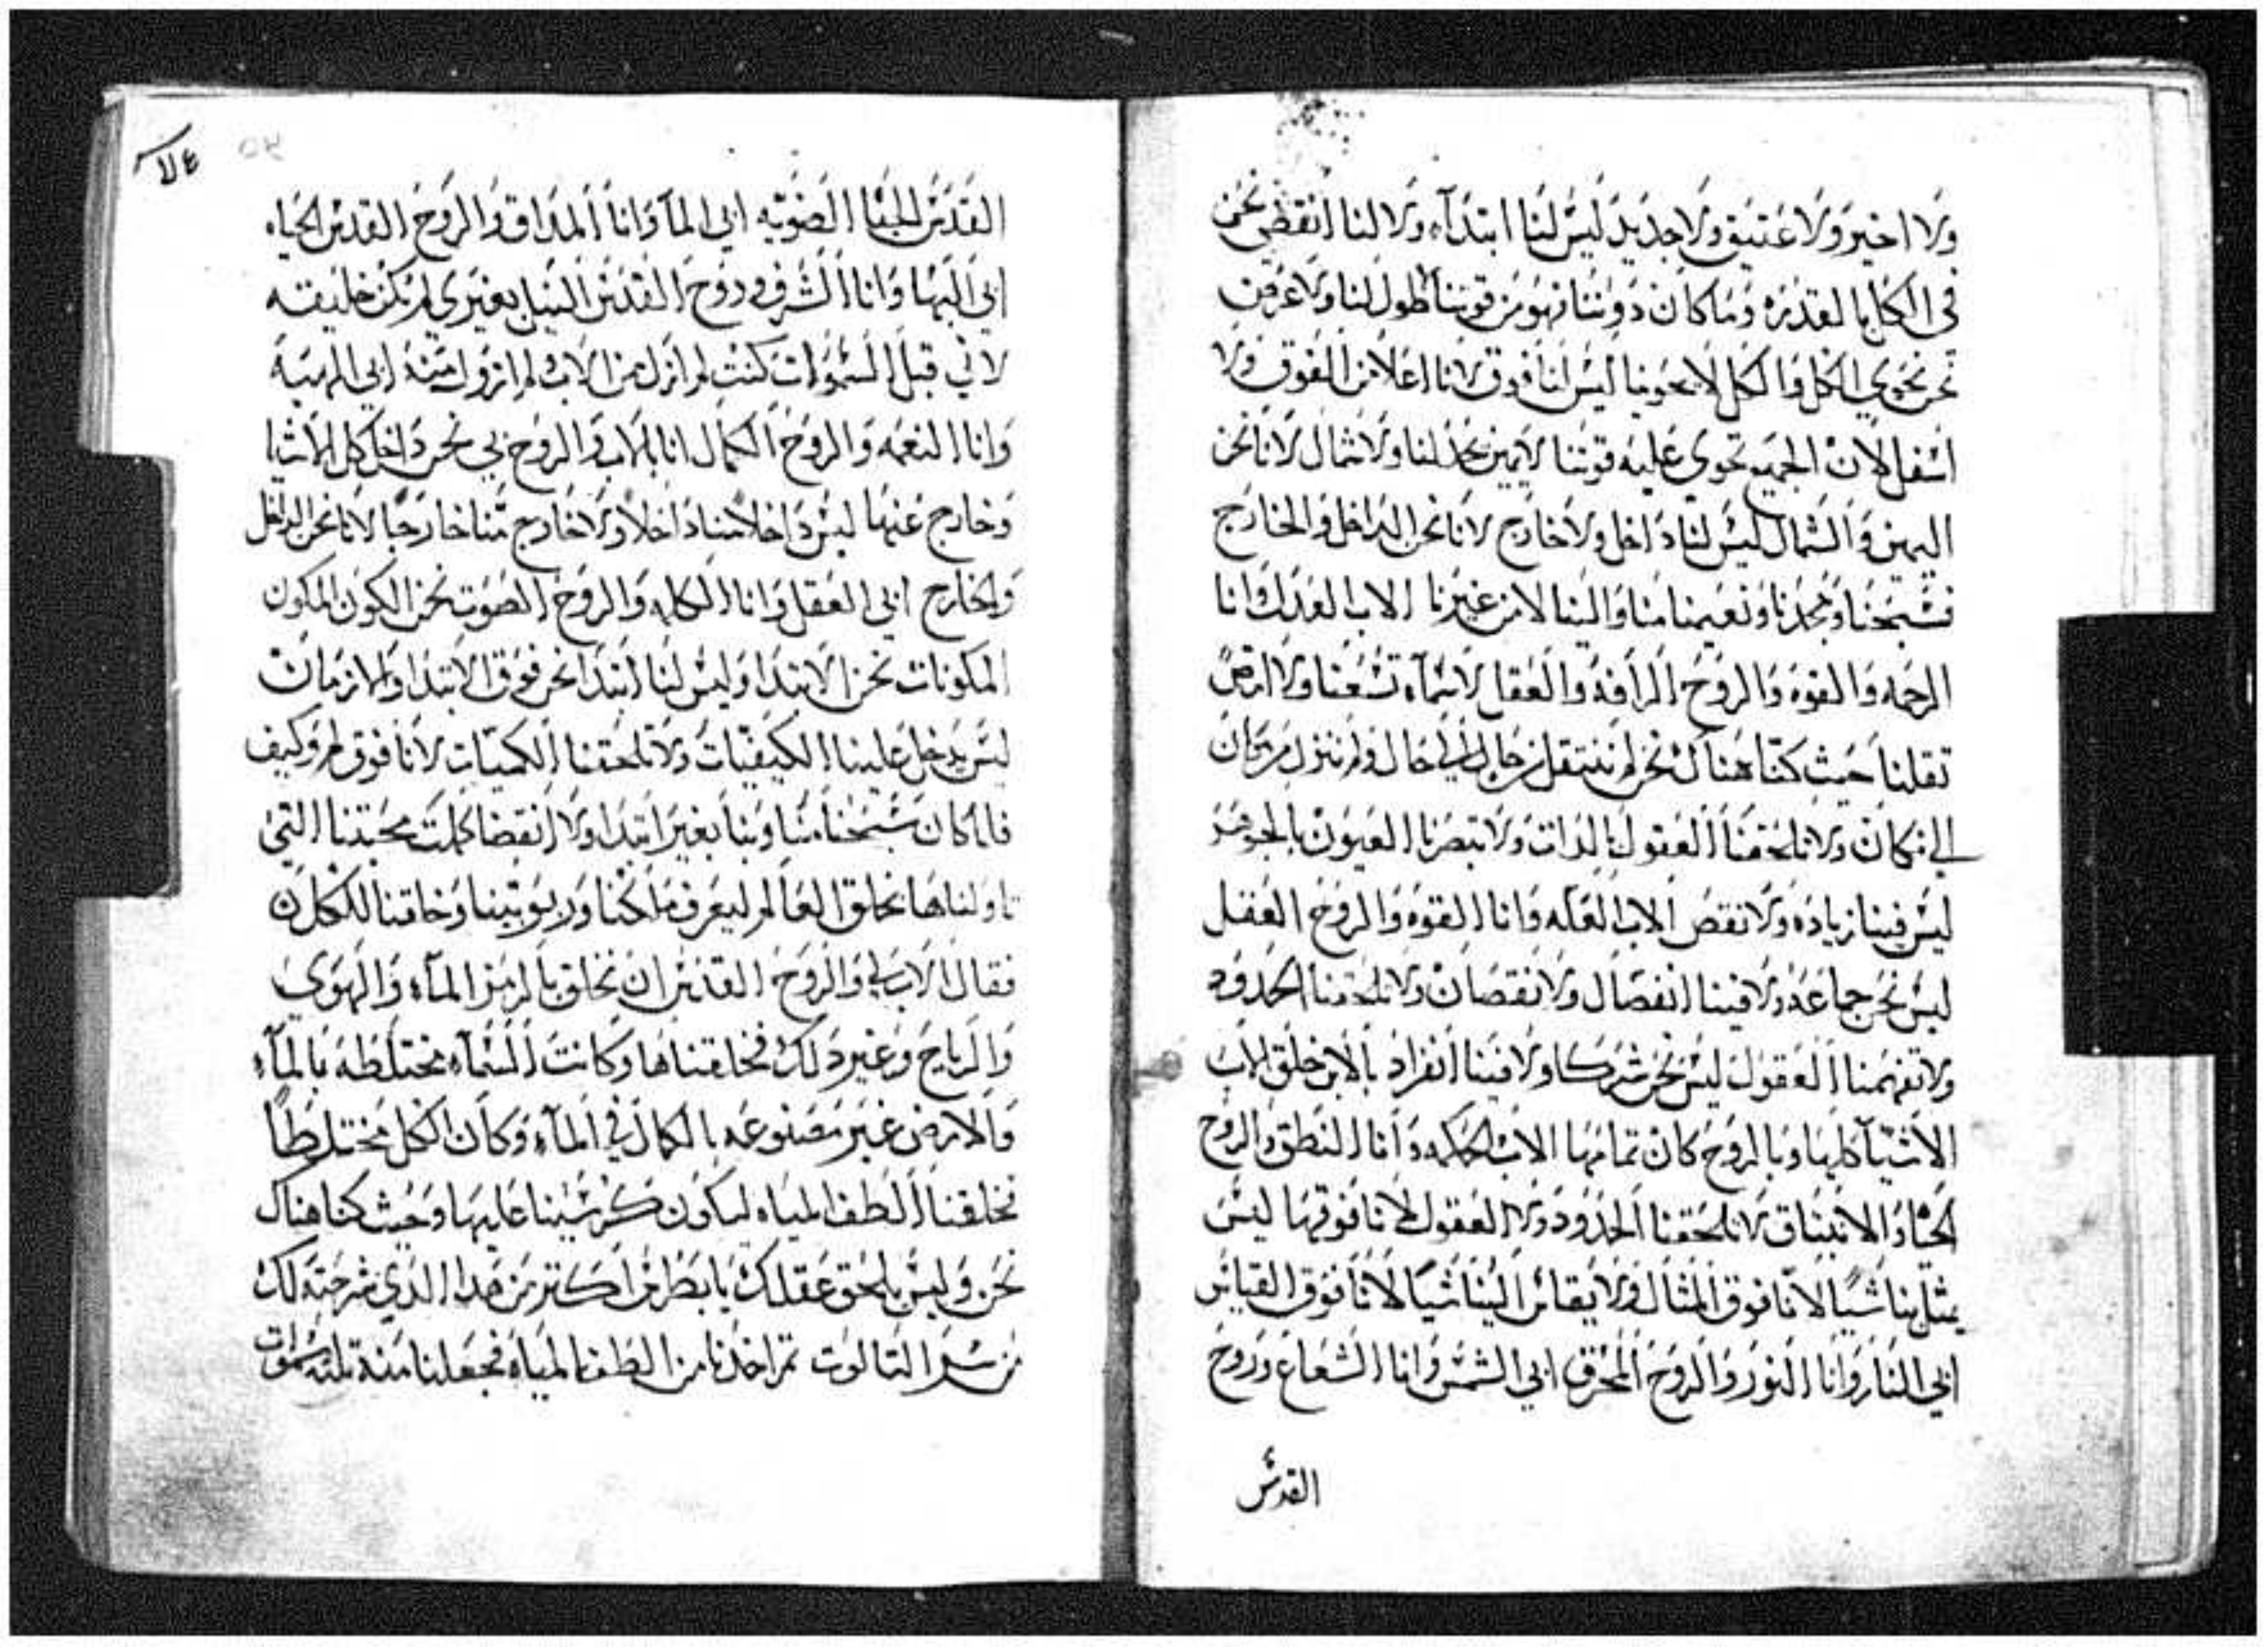 ولا اخير ولا عتيق ولا جديد ليس لنا ابتدآء ولا لنا انقضى نحن
في الكل بالقدره وما كان دوننا فهو من قوتنا لا طول لنا ولا عرض
نحن نحوي الكل والكل لا يحوينا ليس لنا فوق لانا اعلا من الفوق ولا
اسفل لان الجميع تحوي عليه قوتنا لا يمين تحد لنا ولا شمال لانا نحن
اليمين والشمال ليس لنا داخل ولا خارج لانا نحن الداخل والخارج
فتسبحنا ومجدنا ونعيمنا منا والينا لا من غيرنا الاب العدل وانا
الرحمه والقوه والروح الرافه والعقل لا سمآء تسعنا ولا ارض
تقلنا حيث كنا هناك نحن لم ننتقل من حال الي حال ولم ننزل من مكان
الي مكان ولا تلحقنا العقول بالدات ولا تبصرنا العيون بالجوهر
ليس فينا زياده ولا نقص الاب العله وانا القوه والروح العقل
ليس نحن جماعه ولا فينا انفصال ولا نقصان ولا تلحقنا الحدود
ولا تفهمنا العقول ليس نحن شركا ولا فينا انفراد بالابن خلق الاب
الاشيآ كلها وبالروح كان تمامها الاب الحكمه وانا النطق والروح
الحيا والانبثاق لا تلحقنا الحدود ولا العقول لانا فوقها ليس
يمثل بنا شيا لانا فوق المثال ولا يقاس الينا شيا لانا فوق القياس
ابي النار وانا النور والروح المحرق ابي الشمس وانا الشعاع وروح
القدس
علا
القدس الضويه ابي المآ وانا المداق والروح القدس الحياه
ابي البها وانا الشرف وروح القدس النبيل بغيري لم تكن خليقه
لاني قبل السموات كنت لم ازل من الاب ولم ازول منه ابي الهيبه
وانا النعمه والروح الكمال انا بالاب والروح بي نحن داخل كل الاشيا
وخارج عنها ليس داخلا منا داخلا ولا خارج منا خارجا لانا نحن الداخل
والخارج ابي العقل وانا الكلمه والروح الصوت نحن الكون المكون
المكونات نحن الابتدا وليس لنا ابتدا نحن فوق الابتدا والازمان
ليس يدخل علينا الكيفيات ولا تلحقنا الكميات لانا فوق لم وكيف
فلما كان تسبحنا منا وبنا بغير ابتدا ولا انقضا كملت محبتنا التي
تاولناها نخلق العالم ليعرف ملكنا وربوبيتنا وخلقنا للكل
فقال الاب لي والروح القدس ان نخلق بالرمز المآء والهوي
والرياح وغير دلك فخلقناها وكانت السمآء مختلطه بالمآء
والارض غير مصنوعه بالكمال في المآء وكان الكل مختلطا
فخلقنا الطف المياه ليكون كرسينا عليها وحيث كنا هناك
نحن وليس يلحق عقلك يا بطرس اكتر من هدا الدي شرحته لك
من سر التالوت تم اخدنا من الطف المياه فجعلنا منه تلته سموات